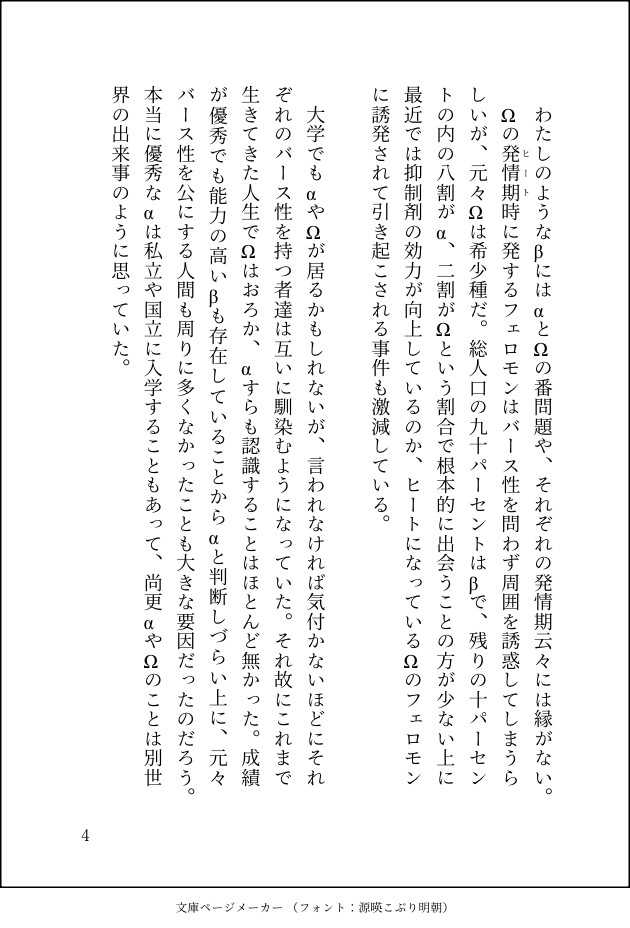 わたしのようなβにはαとΩの番問題や、それぞれの発情期云々には縁がない。
Ωの発情期時に発するフェロモンはバース性を問わず周囲を誘惑してしまうら
ヒート
しいが、元々Ωは希少種だ。総人口の九十パーセントはβで、残りの十パーセン
トの内の八割がα、二割がΩという割合で根本的に出会うことの方が少ない上に
最近では抑制剤の効力が向上しているのか、ヒートになっているΩのフェロモン
に誘発されて引き起こされる事件も激減している。
大学でもαやΩが居るかもしれないが、言われなければ気付かないほどにそれ
ぞれのバース性を持つ者達は互いに馴染むようになっていた。それ故にこれまで
生きてきた人生でΩはおろか、αすらも認識することはほとんど無かった。成績
が優秀でも能力の高いβも存在していることからαと判断しづらい上に、元々
バース性を公にする人間も周りに多くなかったことも大きな要因だったのだろう。
本当に優秀なαは私立や国立に入学することもあって、尚更αやΩのことは別世
界の出来事のように思っていた。
4
文庫ページメーカー（フォント：源暎こぶり明朝）